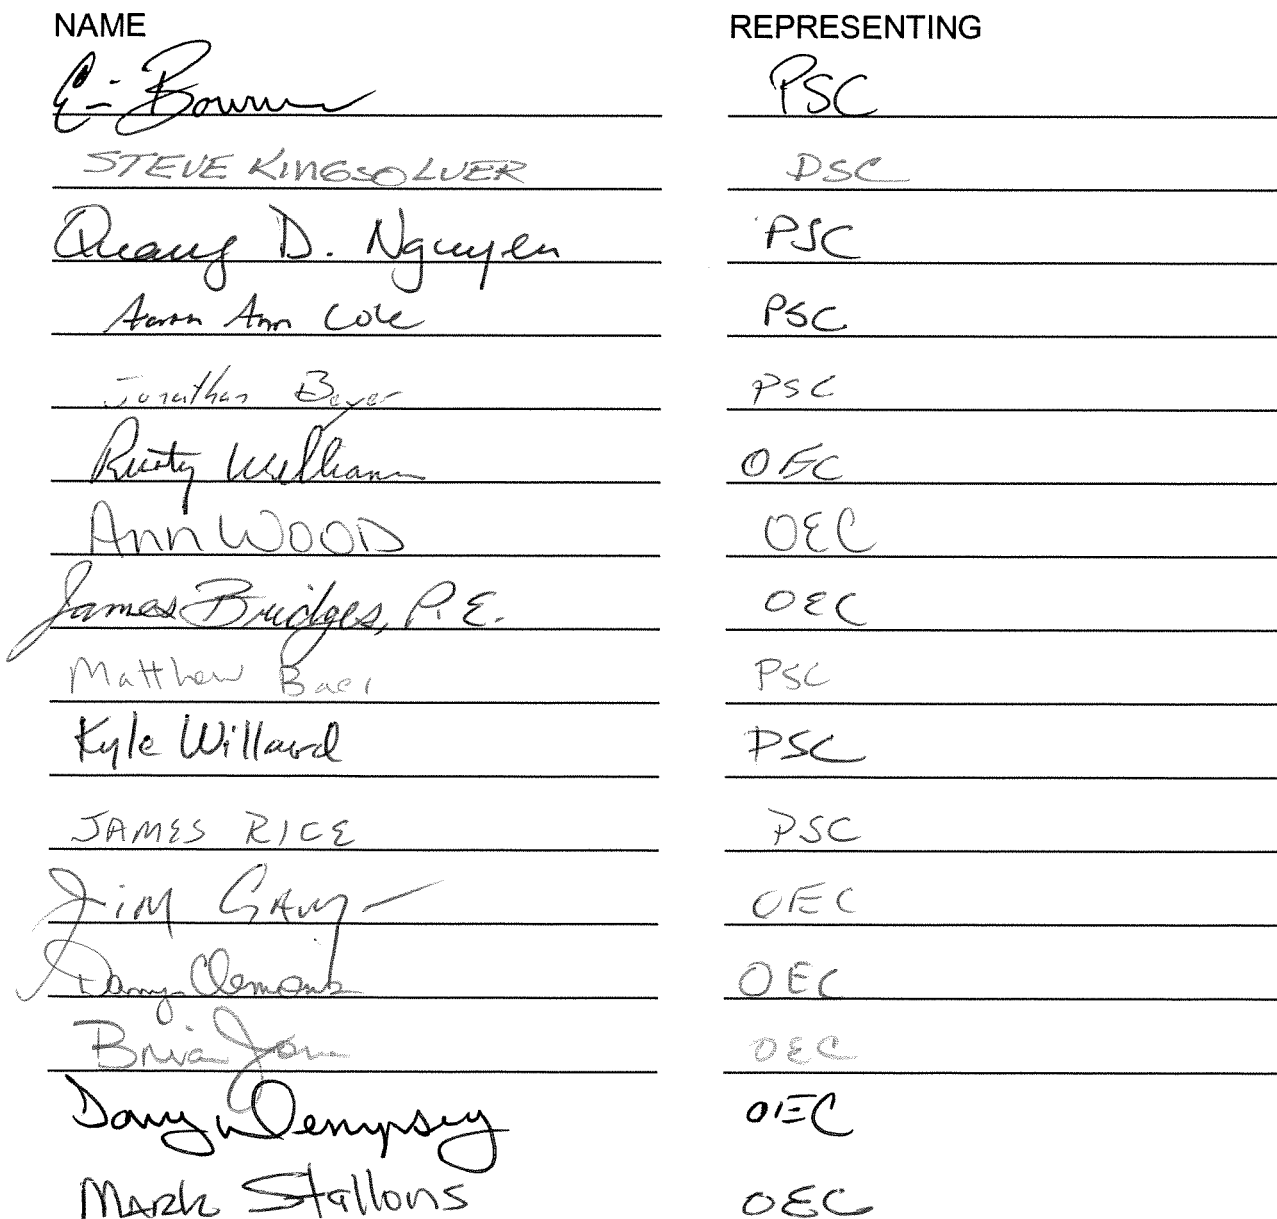 NAME REPRESENTING
Bowman PSC
STEVE KINGSOLVER PSC
Quang D. Nguyen PSC
Aaron Ann Cole PSC
Jonathan Beyer PSC
Rusty Williams OEC
Ann WOOD OEC
James Bridges, P.E. OEC
Matthew Baer PSC
Kyle Willard PSC
JAMES RICE PSC
Jim OEC
Clements OEC
Brian OEC
Dempsey OEC
MARK Stallons OEC